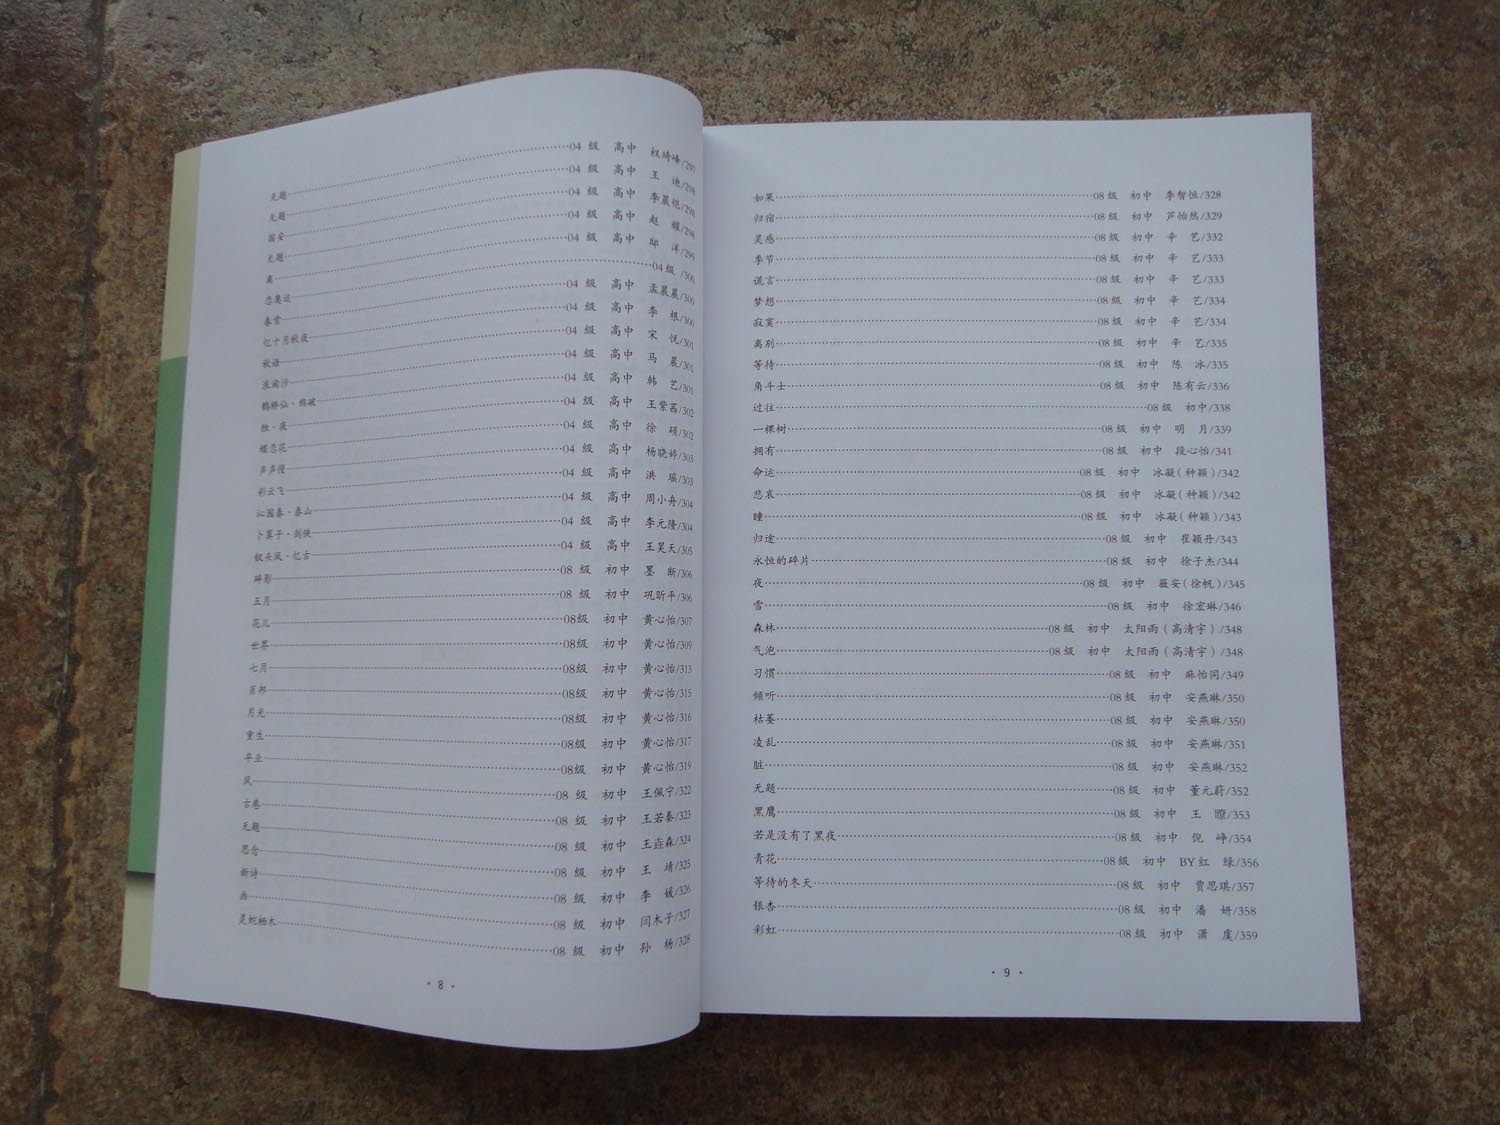 无题……04 级 高中 权琦峰/297
无题……04 级 高中 王 迪/298
……04 级 高中 李晨恺/298
无题……04 级 高中 赵 耀/298
离……04 级 高中 邸 洋/299
……04级 /300
春雪……04 级 高中 孟晨晨/300
忆十月秋夜……04 级 高中 李 根/300
秋语……04 级 高中 宋 悦/301
浪淘沙……04 级 高中 马 晨/301
鹊桥仙·鹊破……04 级 高中 韩 艺/301
独·夜……04 级 高中 王紫茜/302
蝶恋花……04 级 高中 徐 硕/302
声声慢……04 级 高中 杨晓婷/303
彩云飞……04 级 高中 洪 瑶/303
沁园春·泰山……04 级 高中 周小舟/304
卜算子·剑侠……04 级 高中 李元隆/304
钗头凤·忆古……04 级 高中 王昊天/305
碎影……08 级 初中 墨 断/306
三月……08 级 初中 巩昕平/306
花儿……08级 初中 黄心怡/307
世界……08级 初中 黄心怡/309
七月……08级 初中 黄心怡/313
异邦……08级 初中 黄心怡/315
月光……08级 初中 黄心怡/316
重生……08级 初中 黄心怡/317
毕业……08级 初中 黄心怡/319
风……08 级 初中 王佩宁/322
古巷……08 级 初中 王若秦/323
无题……08 级 初中 王垚森/324
思念……08 级 初中 王 靖/325
新诗……08 级 初中 李 媛/326
画……08 级 初中 闫木子/327
灵蛇栖木……08 级 初中 孙 杨/328
·8·
如果……08 级 初中 李智恒/328
归宿……08 级 初中 芦怡然/329
灵感……08 级 初中 辛 艺/332
季节……08 级 初中 辛 艺/333
谎言……08 级 初中 辛 艺/333
梦想……08 级 初中 辛 艺/334
寂寞……08 级 初中 辛 艺/334
离别……08 级 初中 辛 艺/335
等待……08 级 初中 陈 冰/335
角斗士……08 级 初中 陈有云/336
过往……08 级 初中/338
一棵树……08 级 初中 明 月/339
拥有……08 级 初中 段心怡/341
命运……08 级 初中 冰凝(种颖)/342
悲哀……08 级 初中 冰凝(种颖)/342
瞳……08 级 初中 冰凝(种颖)/343
归途……08 级 初中 崔颖丹/343
永恒的碎片……08 级 初中 徐子杰/344
夜……08 级 初中 薇安(徐帆)/345
雪……08 级 初中 徐宏琳/346
森林……08 级 初中 太阳雨(高清宇)/348
气泡……08 级 初中 太阳雨(高清宇)/348
习惯……08 级 初中 麻怡同/349
倾听……08 级 初中 安燕琳/350
枯萎……08 级 初中 安燕琳/350
凌乱……08 级 初中 安燕琳/351
脏……08 级 初中 安燕琳/352
无题……08 级 初中 董元蔚/352
黑鹰……08 级 初中 王 瞭/353
若是没有了黑夜……08 级 初中 倪 峰/354
青花……08 级 初中 BY红 绿/356
等待的冬天……08 级 初中 贾思琪/357
银杏……08 级 初中 潘 妍/358
彩虹……08 级 初中 潇 虞/359
·9·